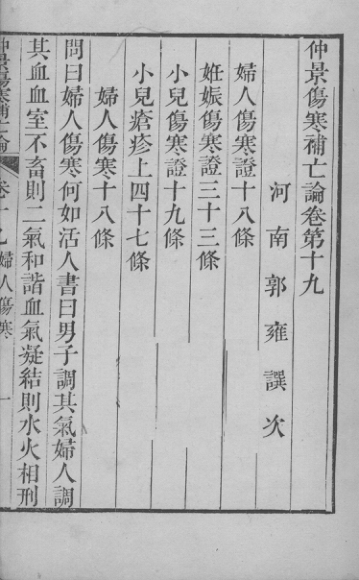 仲景傷寒補亡論卷第十九
河南郭雍譔次
婦人傷寒證十八條
姙娠傷寒證三十三條
小兒傷寒證十九條
小兒瘡疹上四十七條
婦人傷寒十八條
問曰婦人傷寒何如活人書曰男子調其氣婦人調
其血血室不畜則二氣和諧血氣凝結則水火相刑
仲景傷寒補亡論 卷十九 婦人傷寒 一